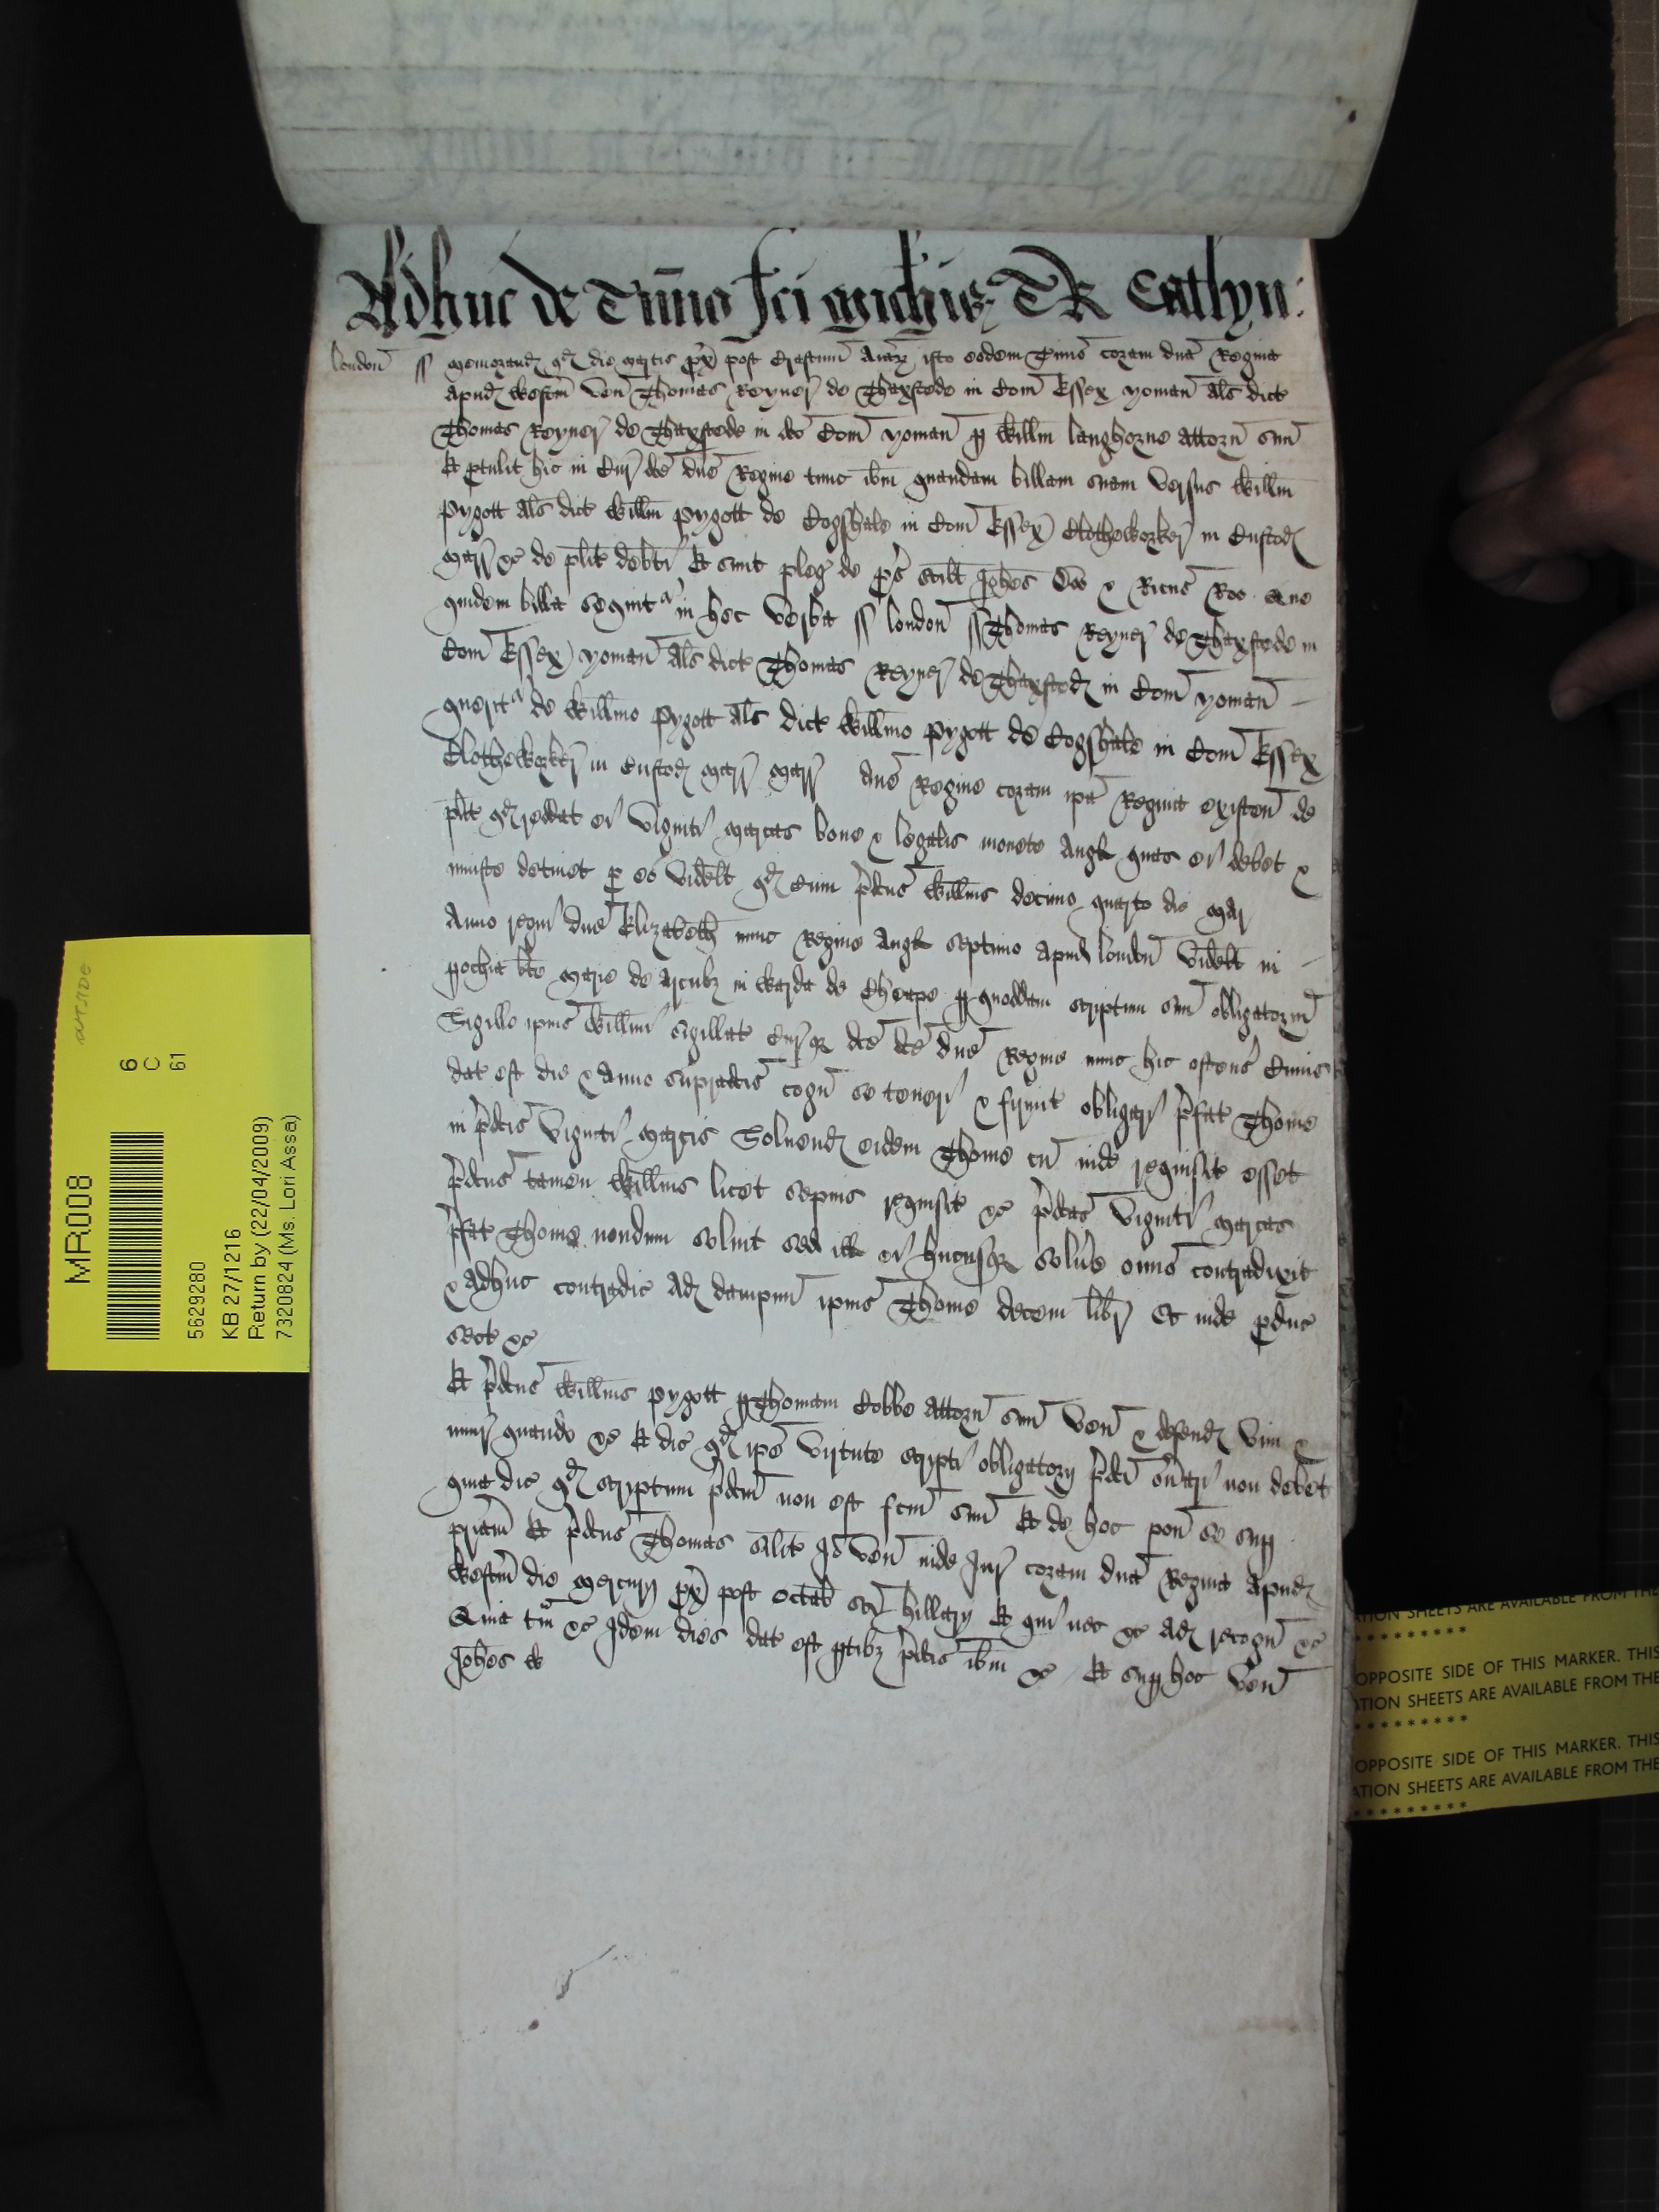 Adhuc de Tmio sci Mich'is T R Catlyn:
london ss Memorand qd die martis px post Crastinu Aiaz isto eodem Tmio coram dna Regina
apud Westm ven Thomas Reyner de Thaxstede in Com Essex yoman als dict
Thomas Reyner de Thaxstede in Com yoman p Willm langhorne attorn suu
Et ptulit hic in Cur dce dne Regine tunc ibm quandam billam suam versus Willm
Pygott als dict Willm Pygott de Cogshale in Com Essex Clotheworker in Custod
Marr &c de plito debiti Et sunt pleg de ps scilt Johes Doo & Ricus Roo Que
quidem billa sequitr in hec verba ss london ss Thomas Reyner de Thaxstede in
Com Essex yoman als dict Thomas Reyner de Thaxsted in Com yoman
queritr de Willmo Pygott als dict Willmo Pygott de Cogshale in Com Essex
Clotheworker in Custod Marr Marr dne Regine coram ipa Regina existen de
plito qd reddat ei viginti marcas bone & legalis monete Angl quas ei debet &
iniuste detinet p eo videlt qd cum pdcus Willms decimo quarto die Maii
Anno regni dne Elizabeth nunc Regine Angl septimo apud london videlt in
pochia bte Marie de Arcubz in Warda de Cheape p quoddam scriptum suu obligatoriu
Sigillo ipius Willmi sigillat Curieqz dce dce dne Regine nunc hic ostens Cuius
dat est die & anno supradcis cogn se teneri & firmit obligari pfat Thome
in pdcis viginti marcis Solvend eidem Thome cu inde requisit esset
pdcus tamen Willms licet sepius requisit &c pdcas viginti marcas
pfat Thome nondum solvit sed ill ei hucusqz solve omio contradixit
& adhuc contradic Ad dampnu ipius Thome decem libr Et inde pduc
sect &c
Et pdcus Willms Pygott p Thomam Cobbe attorn suu ven & defend vim &
iniur quando &c Et dic qd ipe virtute scripti obligatorij pdci onari non debet
quia dic qd scriptum pdcm non est fcm suu Et de hoc pon se sup
priam Et pdcus Thomas silit Io ven inde Jur coram dna Regina apud
Westm die Mercurij px post octab sci Hillarij Et qui nec &c ad recogn &c
Quia tm &c Idem dies dat est ptibz pdcis ibm &c Et sup hoc ven
Johes W
MR008
6
C
61
5629280
KB 27/1216
Return by (22/04/2009)
7320824 (Ms. Lori Assa)
ATION SHEETS ARE AVAILABLE FROM THE
*********
OPPOSITE SIDE OF THIS MARKER. THIS
ATION SHEETS ARE AVAILABLE FROM THE
*********
OPPOSITE SIDE OF THIS MARKER. THIS
ATION SHEETS ARE AVAILABLE FROM THE
*********